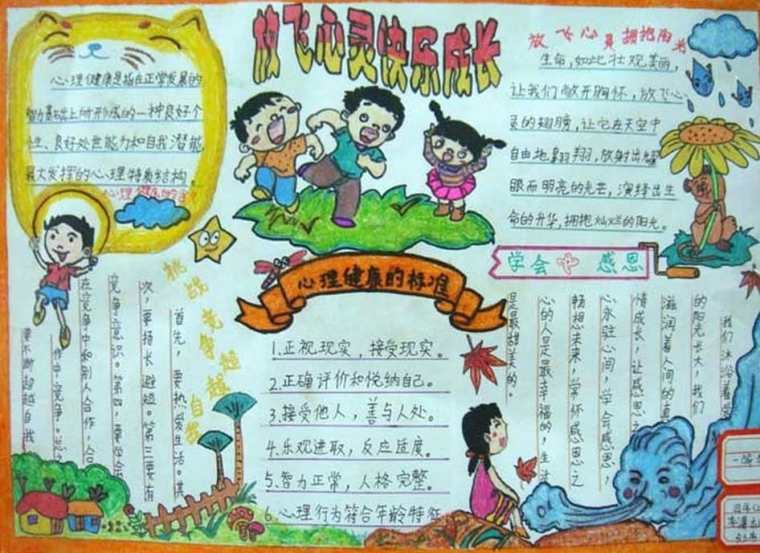 放飞心灵快乐成长
心理健康是指在正常发展的
智力基础上所形成的一种良好个
性、良好处世能力和自我潜能
最大发挥的心理特质结构。
心理健康的
放飞心灵拥抱阳光
生命,如此壮观美丽,
让我们敞开胸怀,放飞心
灵的翅膀,让它在天空中
自由地翱翔,放射出耀
眼而明亮的光芒,演绎出生
命的升华,拥抱灿烂的阳光。
挑战竞争超越自我
首先,要热爱生活。其
次,要扬长避短。第三要有
竞争意识。第四,要学会
在竞争中和别人合作,合
作中竞争。总之
要不断超越自我
心理健康的标准
1.正视现实,接受现实。
2.正确评价和悦纳自己。
3.接受他人,善与人处。
4.乐观进取,反应适度。
5.智力正常,人格完整。
6.心理行为符合年龄特征
学会 感恩
我们沐浴着
的阳光长大,我们
滋润着人间的真
情成长,让感恩之
心永驻心间,学会感恩,
畅想未来,常怀感恩之
心的人是最幸福的,生活
是最甜美的。